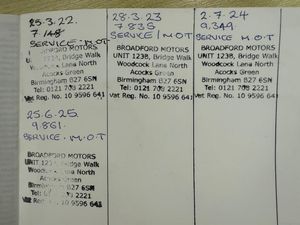 25.3.22.
7148
SERVICE · M·O·T
BROADFORD MOTORS
UNIT 123B, Bridge Walk
Woodcock Lane North
Acocks Green
Birmingham B27 6SN
Tel: 0121 708 2221
Vat Reg. No. 10 9596 641
28.3.23
7835
SERVICE / M·O·T
BROADFORD MOTORS
UNIT 123B, Bridge Walk
Woodcock Lana North
Acocks Green
Birmingham B27 6SN
Tel: 0121 708 2221
Vat Reg. No. 10 9596 641
2.7.24
9349
SERVICE M·O·T
BROADFORD MOTORS
UNIT 123B, Bridge Walk
Woodcock Lana North
Acocks Green
Birmingham B27 6SN
Tel: 0121 708 2221
Vat Reg. No. 10 9596 641
25.6.25
9861.
SERVICE · M.O.T
BROADFORD MOTORS
UNIT 123B, Bridge Walk
Woodcock Lana North
Acocks Green
Birmingham B27 6SN
2221
Vat Reg. No. 10 9596 641